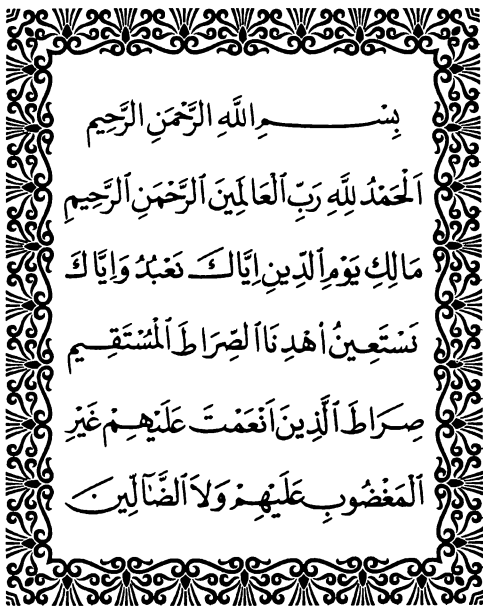 بِسْــــمِ اللَّهِ الرَّحْمَنِ الرَّحِيمِ
اَلْحَمْدُ لِلَّهِ رَبِّ الْعَالَمِينَ الرَّحْمَنِ الرَّحِيمِ
مَالِكِ يَوْمِ الدِّينِ اِيَّاكَ نَعْبُدُ وَاِيَّاكَ
نَسْتَعِينُ اهْدِنَا الصِّرَاطَ الْمُسْتَقِيم
صِرَاطَ الَّذِينَ اَنْعَمْتَ عَلَيْهِمْ غَيْرِ
الْمَغْضُوبِ عَلَيْهِمْ وَلاَ الضَّآلِّينَ